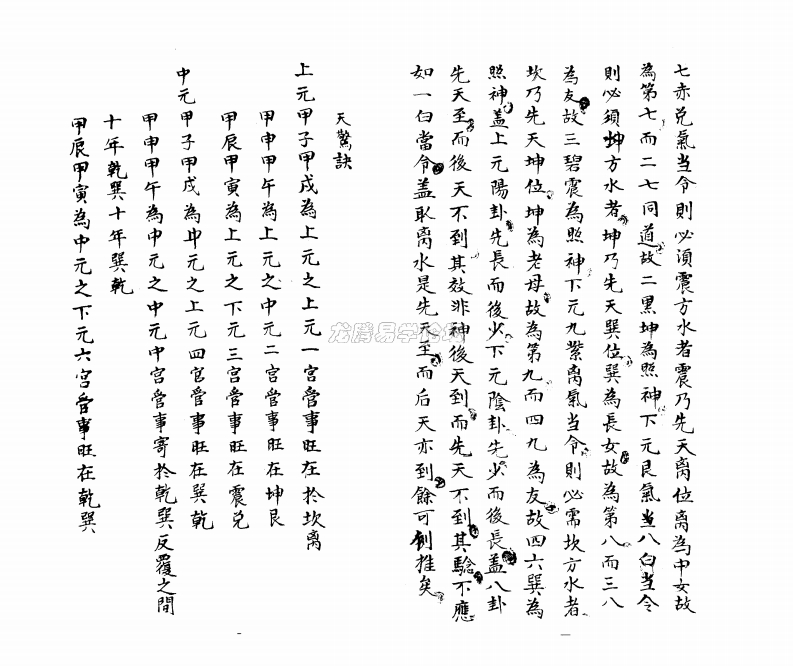 七赤兌氣当令則必須震方水者震乃先天离位离為中女故
為第七而二七同道故二黑坤為照神下元艮氣当八白当令
則必須坤方水者坤乃先天巽位巽為長女故為第八而三八
為友故三碧震為照神下元九紫离氣当令則必需坎方水者
坎乃先天坤位坤為老母故為第九而四九為友故四六巽為
照神盖上元陽卦先長而後少下元陰卦先少而後長盖八卦
先天至而後天不到其效非神後天到而先天不到其驗不應
如一白當令盖取离水是先天至而后天亦到餘可例推矣
天驚訣
上元甲子甲戌為上元之上元一宮管事旺在於坎离
甲申甲午為上元之中元二宮管事旺在坤艮
甲辰甲寅為上元之下元三宮管事旺在震兌
中元甲子甲戌為中元之上元四宮管事旺在巽乾
甲申甲午為中元之中元中宮管事寄於乾巽反覆之間
十年乾巽十年巽乾
甲辰甲寅為中元之下元六宮管事旺在乾巽
龙腾易学论坛